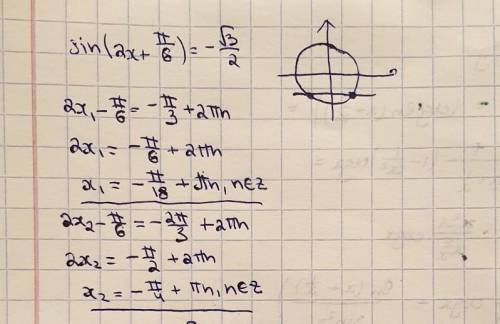 sin(2x + π/6) = -√3/2
2x₁ - π/6 = -π/3 + 2πn
2x₁ = -π/6 + 2πn
x₁ = -π/18 + πn, n∈z
2x₂ - π/6 = -2π/3 + 2πn
2x₂ = -π/2 + 2πn
x₂ = -π/4 + πn, n∈z